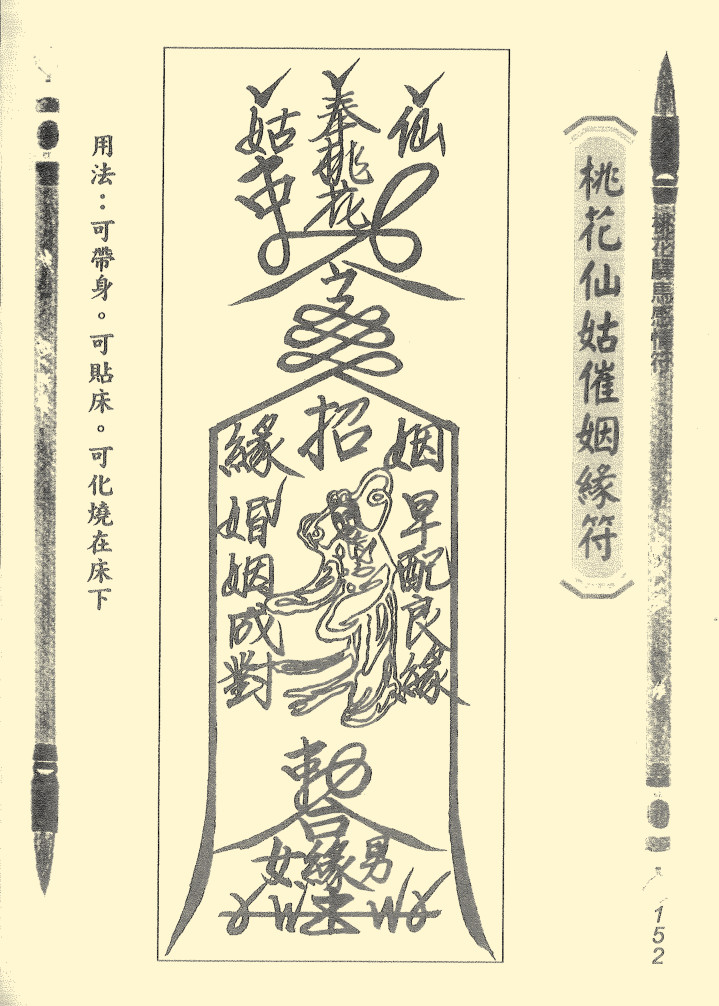 桃花驛馬感情符
桃花仙姑催姻緣符
仙
奉桃花
姑
勅
招
姻
緣
早配良緣
婚姻成對
勅
合
男
緣
女
用法：可帶身。可貼床。可化燒在床下
152